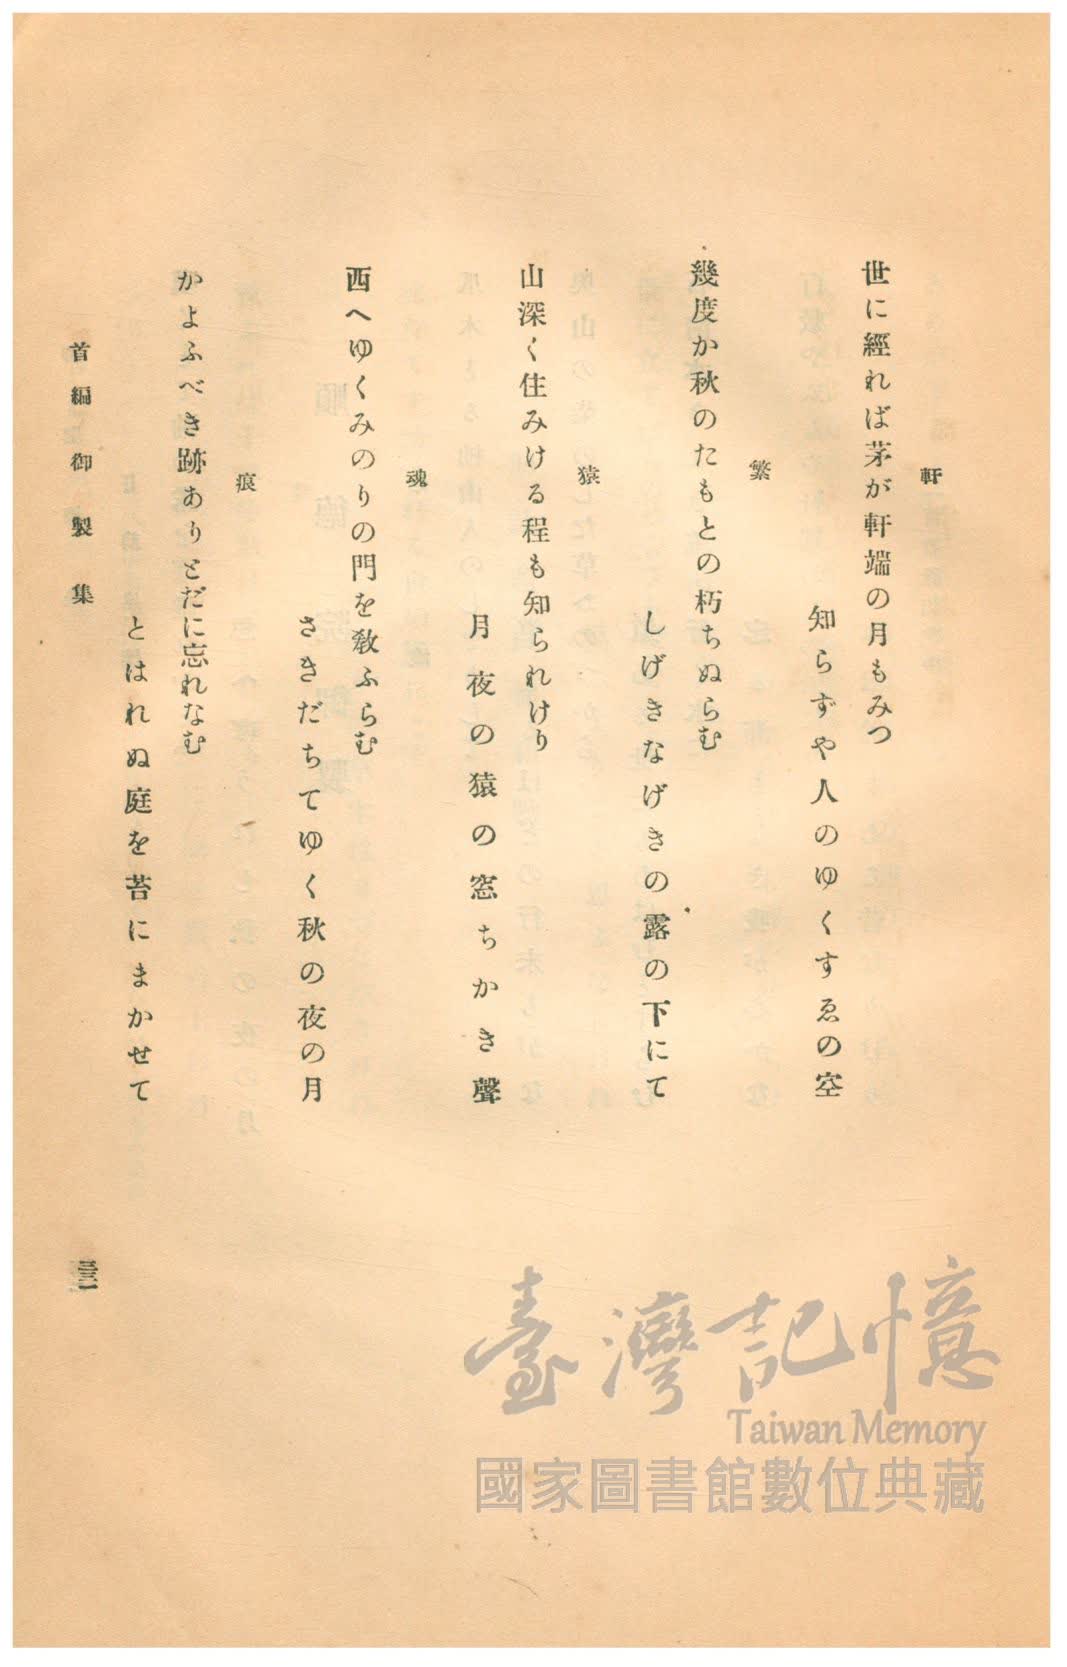 軒
世に經れば茅が軒端の月もみつ
知らずや人のゆくすゑの空
繁
幾度か秋のたもとの朽ちぬらむ
しげきなげきの露の下にて
猿
山深く住みける程も知られけり
月夜の猿の窓ちかき聲
魂
西へゆくみのりの門を敎ふらむ
さきだちてゆく秋の夜の月
痕
かよふべき跡ありとだに忘れなむ
とはれぬ庭を苔にまかせて
首編御製集
臺灣記憶
Taiwan Memory
國家圖書館數位典藏